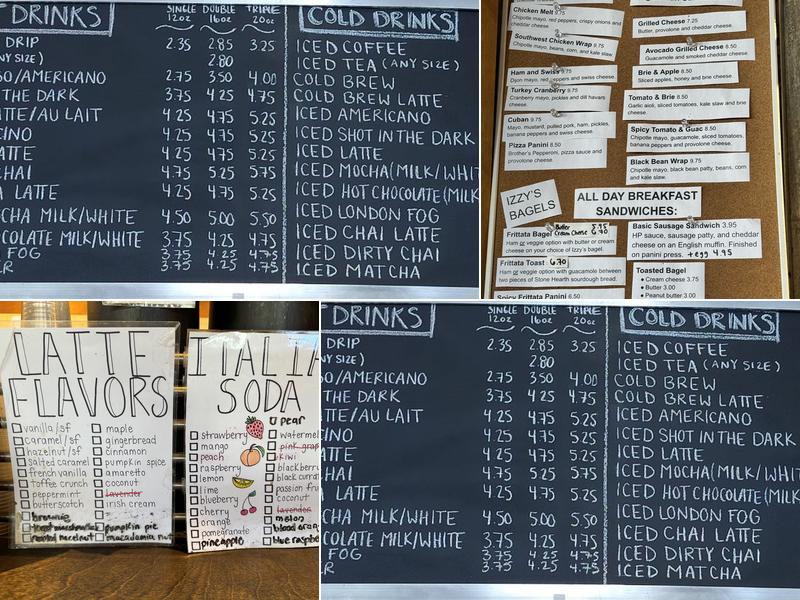 DRINKS
SINGLE DOUBLE TRIPLE
12oz 16oz 20oz
DRIP 2.35 2.85 3.25
2.80
SO/AMERICANO 2.75 3.50 4.00
THE DARK 3.75 4.25 4.75
TTE/AU LAIT 4.25 4.75 5.25
CINO 4.25 4.75 5.25
ATTE 4.25 4.75 5.25
HAI 4.75 5.25 5.75
A LATTE 4.25 4.75 5.25
CHA MILK/WHITE 4.50 5.00 5.50
COLATE MILK/WHITE 3.75 4.25 4.75
FOG 3.75 4.25 4.75
3.75 4.25 4.75
COLD DRINKS
ICED COFFEE
ICED TEA (ANY SIZE)
COLD BREW
COLD BREW LATTE
ICED AMERICANO
ICED SHOT IN THE DARK
ICED LATTE
ICED MOCHA (MILK/WH
ICED HOT CHOCOLATE (MILK
ICED LONDON FOG
ICED CHAI LATTE
ICED DIRTY CHAI
ICED MATCHA
Chicken Melt 9.75
Chipotle mayo, red peppers, crispy onions and
cheddar cheese.
Southwest Chicken Wrap 9.75
Chipotle mayo, beans, corn, and kale slaw
Ham and Swiss 9.75
Dijon mayo, red peppers and swiss cheese.
Turkey Cranberry 9.75
Cranberry mayo, pickles and dill havarti
cheese.
Cuban 9.75
Mayo, mustard, pulled pork, ham, pickles,
banana peppers and swiss cheese.
Pizza Panini 8.50
Brother's Pepperoni, pizza sauce and
provolone cheese.
Grilled Cheese 7.25
Butter, provolone and cheddar cheese.
Avocado Grilled Cheese 8.50
Guacamole and smoked cheddar cheese.
Brie & Apple 8.50
Sliced apples, honey and brie cheese.
Tomato & Brie 8.50
Garlic aioli, sliced tomatoes, kale slaw and brie
cheese.
Spicy Tomato & Guac 8.50
Chipotle mayo, guacamole, sliced tomatoes,
banana peppers and provolone cheese.
Black Bean Wrap 9.75
Chipotle mayo, black bean patty, beans, corn
and kale slaw.
IZZY'S
BAGELS
ALL DAY BREAKFAST
SANDWICHES:
Frittata Bagel Butter
Cream Cheese 6.70
Ham or veggie option with butter or cream
cheese on your choice of Izzy's bagel.
Frittata Toast 6.70
Ham or veggie option with guacamole between
two pieces of Stone Hearth sourdough bread.
Spicy Frittata Panini 6.50
Basic Sausage Sandwich 3.95
HP sauce, sausage patty, and cheddar
cheese on an English muffin. Finished
on panini press. + egg 4.95
Toasted Bagel
• Cream cheese 3.75
• Butter 3.00
• Peanut butter 3.00
LATTE
FLAVORS
vanilla/sf
caramel/sf
hazelnut/sf
salted caramel
french vanilla
toffee crunch
peppermint
butterscotch
brownie
roasted hazelnut
maple
gingerbread
cinnamon
pumpkin spice
amaretto
coconut
lavender
irish cream
pumpkin pie
macadamia nut
ITALIA
SODA
strawberry
mango
peach
raspberry
lemon
lime
blueberry
cherry
orange
pomegranate
pineapple
pear
watermel
pink grap
kiwi
blackberr
black curra
passion fru
coconut
lavender
melon
blood oran
blue raspbe
DRINKS
SINGLE DOUBLE TRIPLE
12oz 16oz 20oz
DRIP 2.35 2.85 3.25
NY SIZE) 2.80
SO/AMERICANO 2.75 3.50 4.00
THE DARK 3.75 4.25 4.75
TTE/AU LAIT 4.25 4.75 5.25
CINO 4.25 4.75 5.25
ATTE 4.25 4.75 5.25
HAI 4.75 5.25 5.75
LATTE 4.25 4.75 5.25
CHA MILK/WHITE 4.50 5.00 5.50
COLATE MILK/WHITE 3.75 4.25 4.75
FOG 3.75 4.25 4.75
3.75 4.25 4.75
COLD DRINKS
ICED COFFEE
ICED TEA (ANY SIZE)
COLD BREW
COLD BREW LATTE
ICED AMERICANO
ICED SHOT IN THE DARK
ICED LATTE
ICED MOCHA (MILK/WHIT
ICED HOT CHOCOLATE (MILK
ICED LONDON FOG
ICED CHAI LATTE
ICED DIRTY CHAI
ICED MATCHA